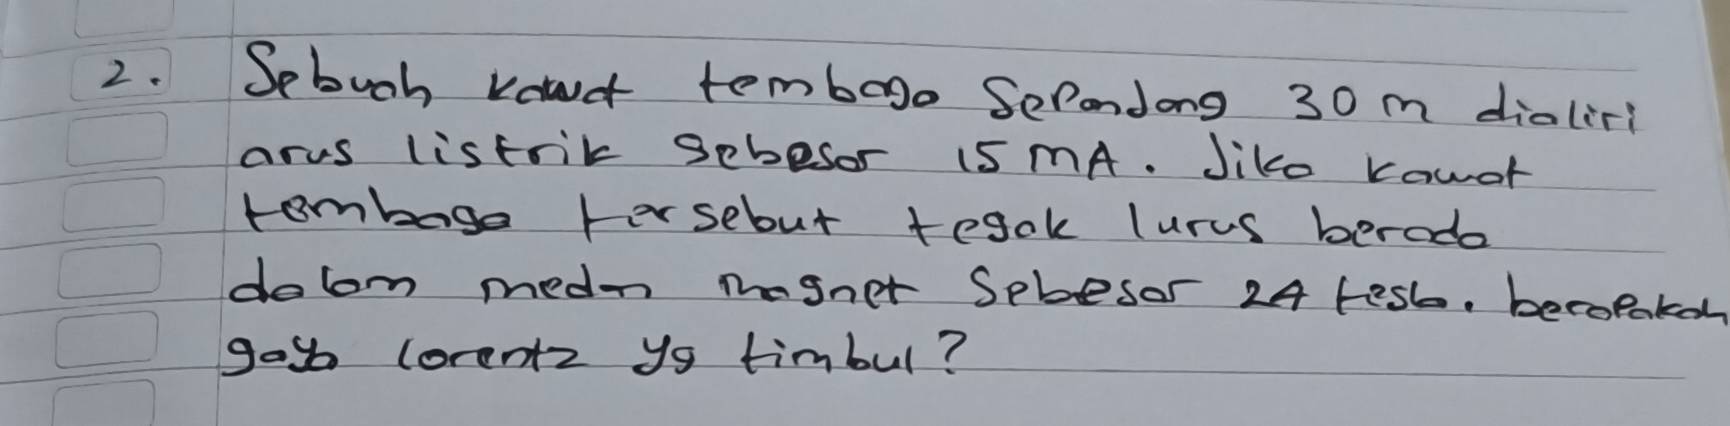 2. Sebuah kawat tembaga Sepandang 30 m dialiri
arus listrik sebesar 15 mA. Jika kawat
tembaga tersebut tegak lurus berada
dalam medan magnet Sebesar 24 tesla. berapakah
gaya lorentz yg timbul?